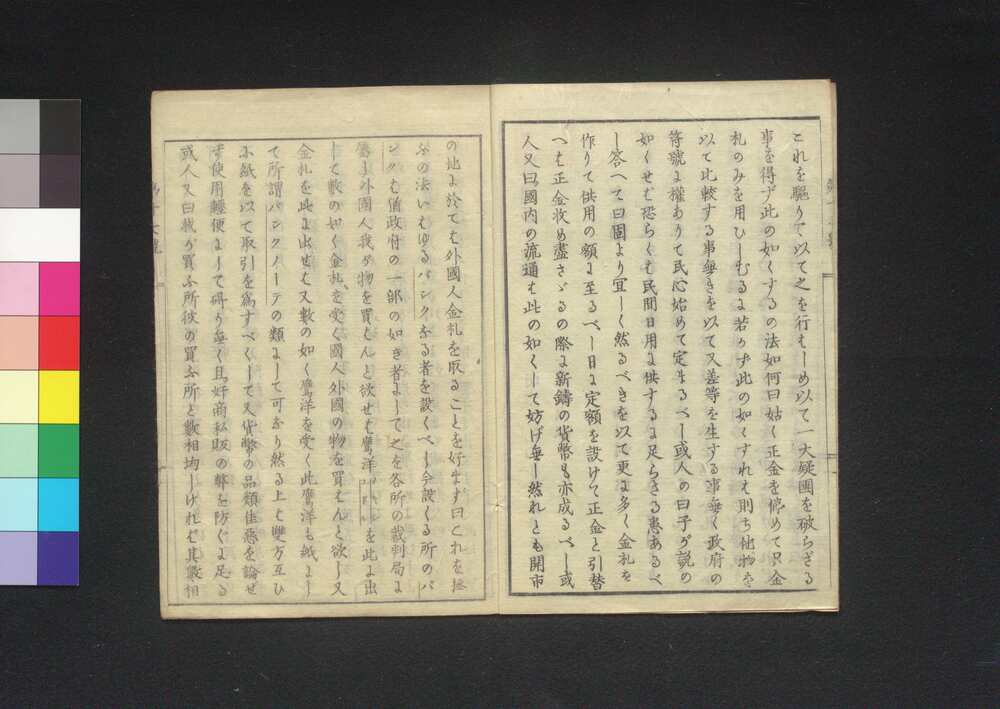 これを驅りて以て之を行むしめ以て一大疑團を破らざる
事を得ず此の如くするの法如何曰姑く正金を停めて只金
札のみを用ひしむるに若かず此の如くすれば則ち他物を
以て比較する事無きを以て又差等を生する事無く政府の
符號に權ありて民心始めて定まるべし或人の曰子が説の
如くせば恐らくは民間日用に供するに足らざる患あるべ
し答へて曰固より宜しく然るべきを以て更に多く金札を
作りて供用の額に至るべし日に定額を設けて正金と引替
へは正金收め盡さゞるの際に新鑄の貨幣も亦成るべし或
人又曰國内の流通は此の如くして妨げ無し然れとも開市
の地に於ては外國人金札を取ることを好まず曰これを處
ふの法いはゆるバンクなる者を設くべし今設くる所のバ
ンクは猶政府の一部の如き者にして之を各所の裁判局に
置し外國人我が物を買はんと欲せば鷹洋を此に出
して數の如く金札を受く國人外國の物を買はんと欲し又
金札を此に出せば又數の如く鷹洋を受く此鷹洋も紙よ
て所謂バンクノーテの類にして可なり然る上は雙方互ひ
に紙を以て取引を爲すべくして又貨幣の品類佳惡を論せ
ず使用輕便にして碍り無く且奸商私販の弊を防ぐに足る
或人又曰我が買ふ所彼の買ふ所と數相均しければ其數相